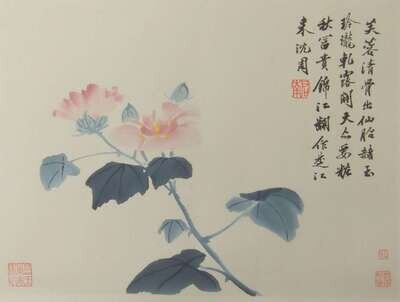 芙蓉清骨出仙胎赭玉
玲瓏軋露開天亦要粧
秋富貴錦江翻作楚江
來沈周